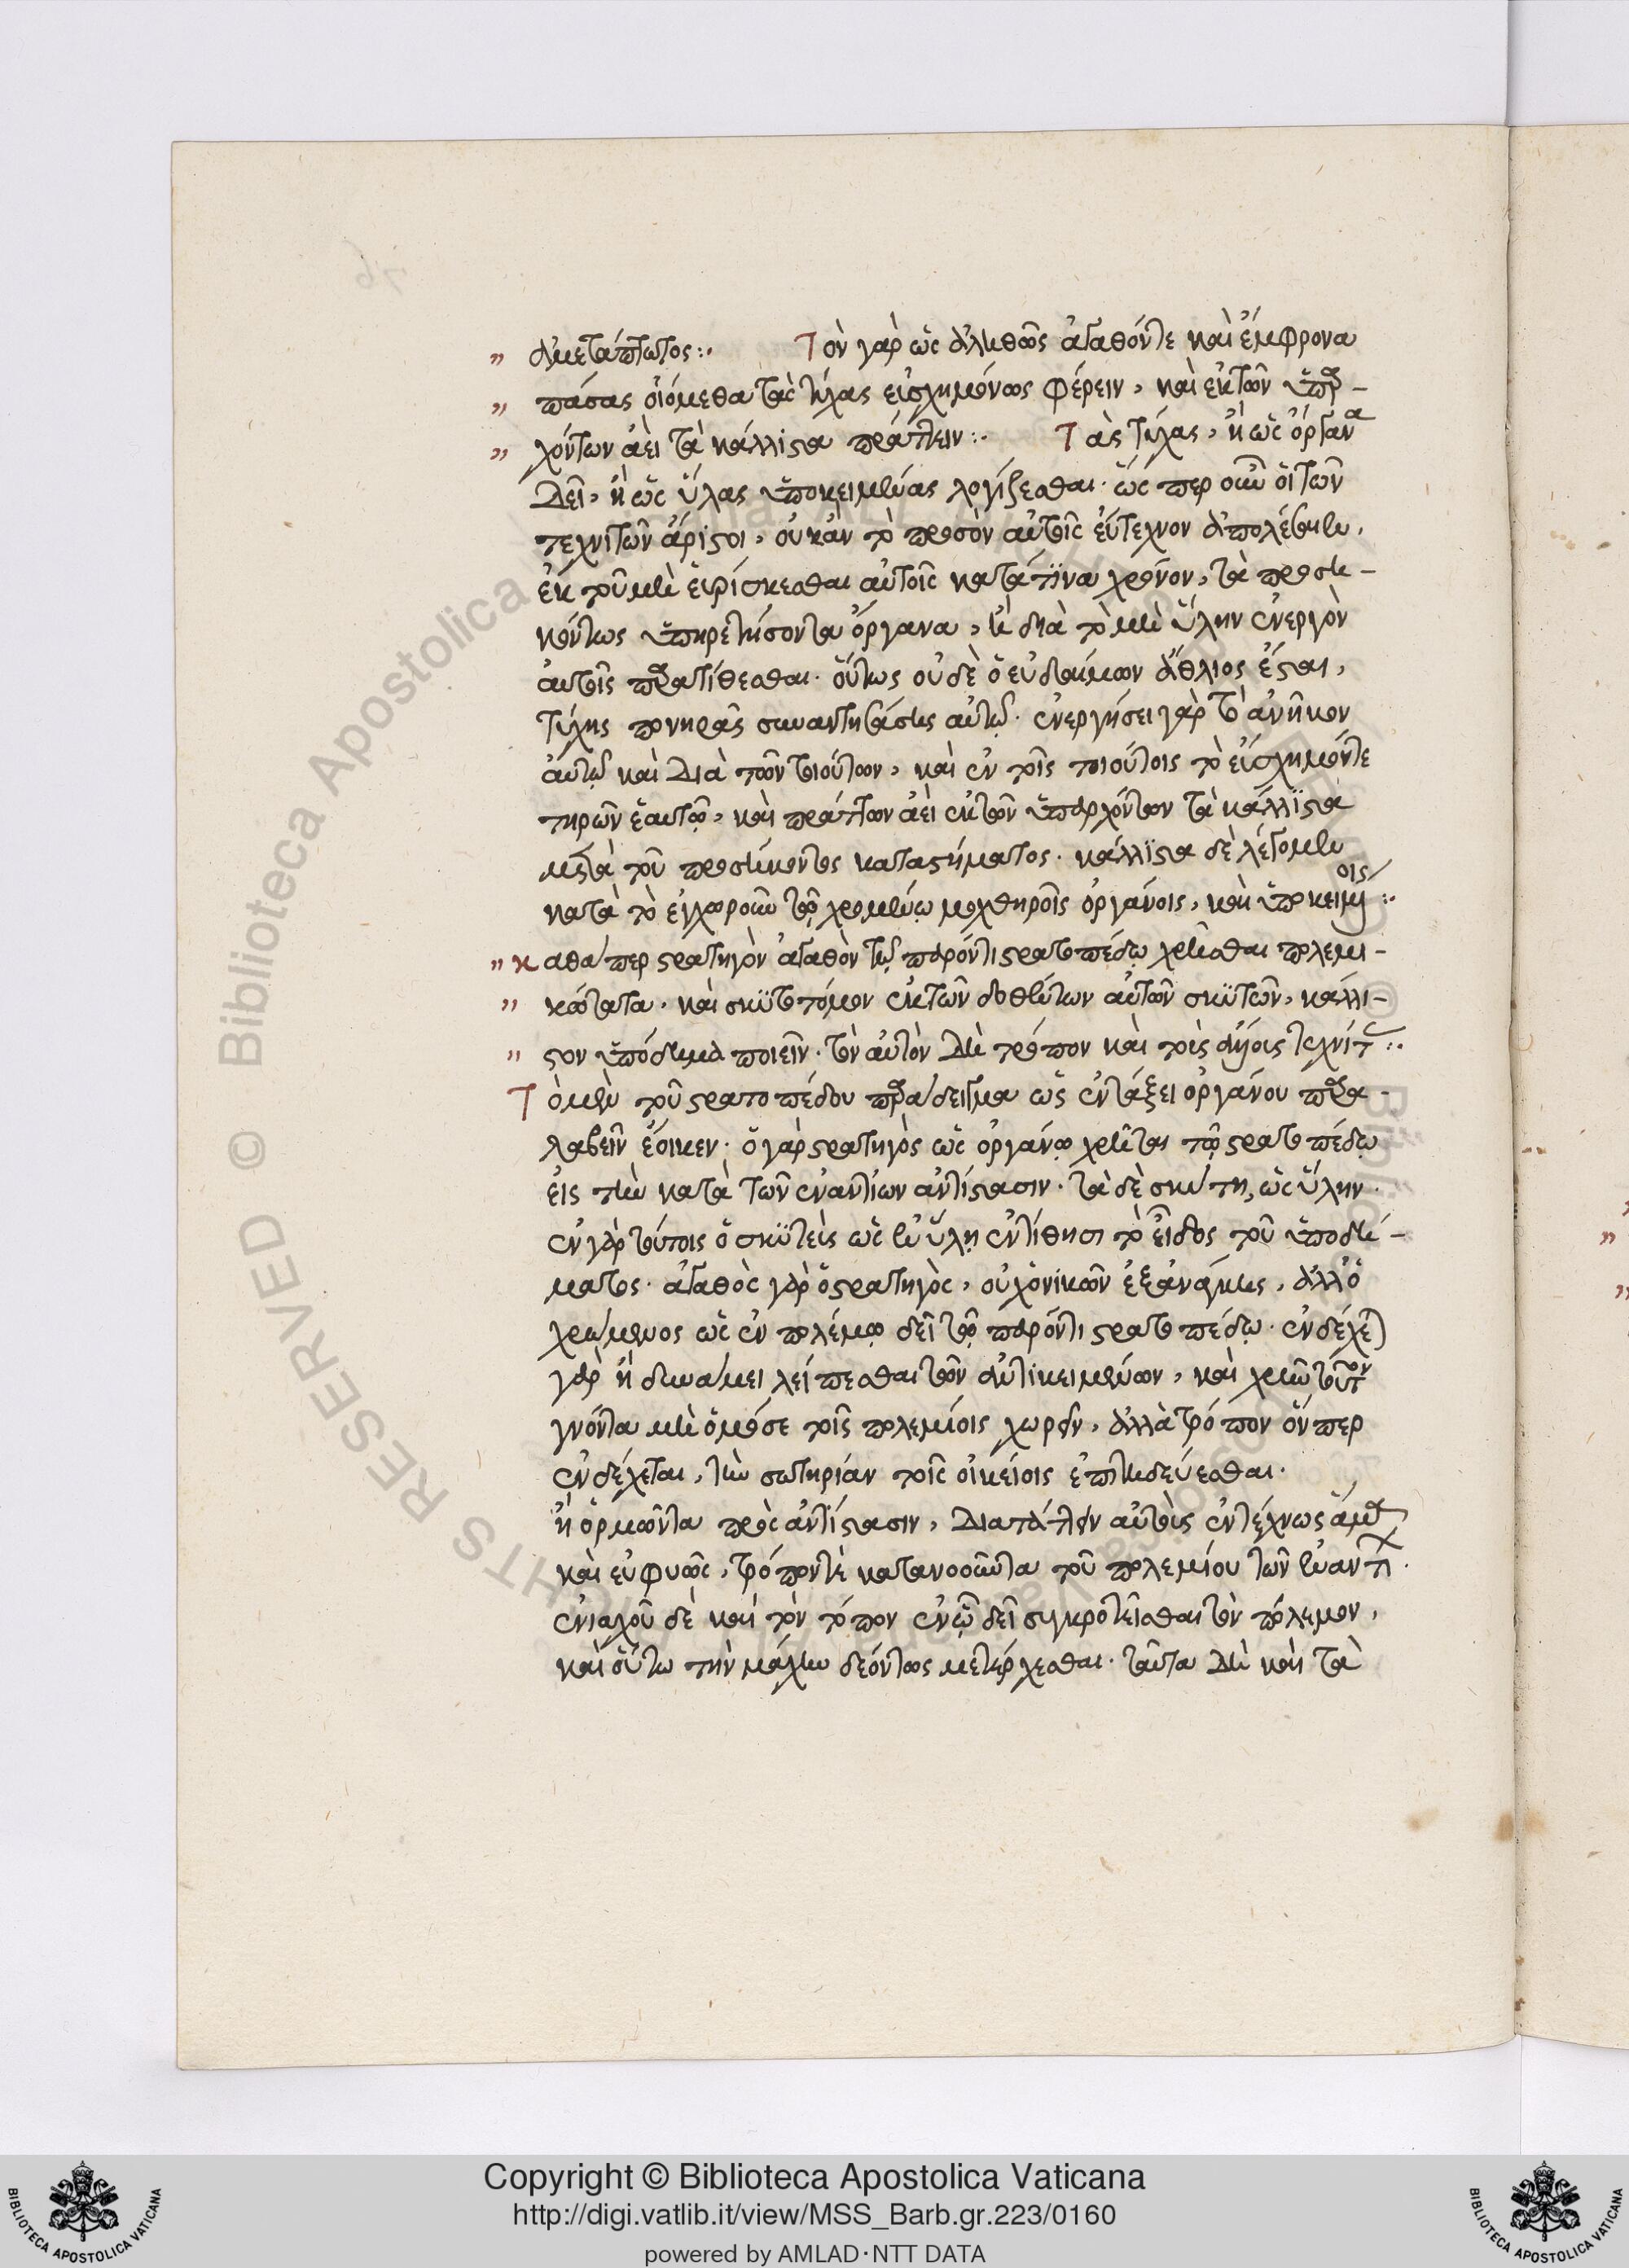 " ἀμετάπτωτος :· Τὸν γὰρ ὡς ἀληθῶς ἀγαθόν τε καὶ ἔμφρονα
" πάσας οἰόμεθα τὰς τύχας εὐσχημόνως φέρειν, καὶ ἐκ τῶν ὑπαρ-
" χόντων ἀεὶ τὰ κάλλιστα πράττειν :· Τὰς τύχας, ἢ ὡς ὄργανα
δεῖ, ἢ ὡς ὕλας ὑποκειμένας λογίζεσθαι. ὥσπερ οὖν οἱ τῶν
τεχνιτῶν ἄριστοι, οὐκ ἂν τὸ προσὸν αὐτοῖς εὔτεχνον
ἐκ τοῦ μὴ εὑρίσκεσθαι αὐτοῖς κατά τινα χρόνον, τὰ προση-
κόντως ὑπηρετήσοντα ὄργανα, ἢ διὰ τὸ μὴ ὕλην ἐνεργὸν
αὐτοῖς παρατίθεσθαι. οὕτως οὐδὲ ὁ εὐδαίμων ἄθλιος ἔσται,
τύχης πονηρᾶς συναντησάσης αὐτῷ. ἐνεργήσει γὰρ τὸ ἀνῆκον
αὐτῷ καὶ διὰ τῶν τοιούτων, καὶ ἐν τοῖς τοιούτοις τὸ εὐσχημόν τε
τηρῶν ἑαυτῷ, καὶ πράττων ἀεὶ ἐκ τῶν ὑπαρχόντων τὰ κάλλιστα
μετὰ τοῦ προσήκοντος καταστήματος. κάλλιστα δὲ λέγομεν
κατὰ τὸ ἐγχωροῦν τῷ χρωμένῳ μοχθηροῖς ὀργάνοις, καὶ ὑποκειμένοις :·
" Καθάπερ στρατηγὸν ἀγαθὸν τῷ παρόντι στρατοπέδῳ χρῆσθαι πολεμι-
" κώτατα. καὶ σκυτοτόμον ἐκ τῶν δοθέντων αὐτῶν σκυτῶν, κάλλι-
" στον ὑπόδημα ποιεῖν. τὸν αὐτὸν δὲ τρόπον καὶ τοὺς ἄλλους τεχνίτας :·
Τὸ μὲν τοῦ στρατοπέδου παράδειγμα ὡς ἐν τάξει ὀργάνου παρα-
λαβεῖν ἔοικεν. ὁ γὰρ στρατηγὸς ὡς ὀργάνῳ χρῆται τῷ στρατοπέδῳ
εἰς τὴν κατὰ τῶν ἐναντίων ἀντίστασιν. τὰ δὲ σκύτη, ὡς ὕλην.
ἐν γὰρ τούτοις ὁ σκυτεὺς ὡς ἐν ὕλῃ ἐντίθησι τὸ εἶδος τοῦ ὑποδή-
ματος. ἀγαθὸς γὰρ ὁ στρατηγὸς, οὐχ ὁ νικῶν ἐξ ἀνάγκης, ἀλλ' ὁ
χρώμενος ὡς ἐν πολέμῳ δεῖ τῷ παρόντι στρατοπέδῳ. ἐνδέχεται
γὰρ ἢ δυνάμει λείπεσθαι τῶν ἀντικειμένων, καὶ χρεὼν τοῦτον
γνόντα μὴ ὁμόσε τοῖς πολεμίοις χωρεῖν, ἀλλὰ τρόπον ὅνπερ
ἐνδέχεται, τὴν σωτηρίαν τοῖς οἰκείοις ἐπιτηδεύεσθαι.
ἢ ὁρμῶντα πρὸς ἀντίστασιν, διατάττειν αὐτοὺς ἐντέχνως ἅμα
καὶ εὐφυῶς, τρόπον τε κατανοοῦντα τοῦ πολεμίου τῶν ἐναντίων.
ἐνιαχοῦ δὲ καὶ τὸν τόπον ἐν ᾧ δεῖ συγκροτεῖσθαι τὸν πόλεμον,
καὶ οὕτω τὴν μάχην δεόντως μετέρχεσθαι. ταῦτα δὲ καὶ τὰ
Copyright © Biblioteca Apostolica Vaticana
http://digi.vatlib.it/view/MSS_Barb.gr.223/0160
powered by AMLAD·NTT DATA